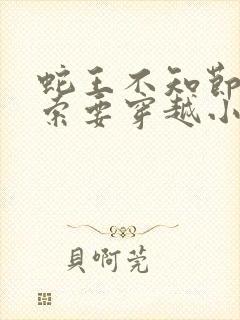 蛇王不知节
索要穿越小
贝啊莞